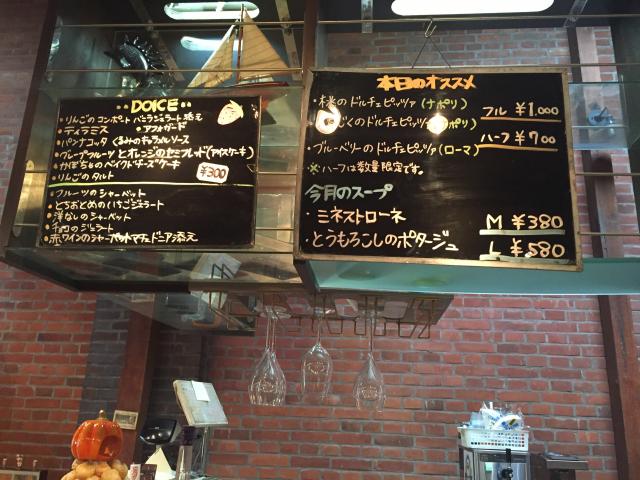 DOLCE
・りんごのコンポート バニラジェラート添え
・ティラミス ・アフォガード
・パンナコッタ くるみのキャラメルソース
・グレープフルーツとオレンジのセミフレッド(アイスケーキ)
・かぼちゃのベイクドチーズケーキ
・りんごのタルト
¥300
・フルーツのシャーベット
・とちおとめのいちごジェラート
・洋なしのシャーベット
・チョコのジェラート
・赤ワインのシャーベット マチェドニア添え
本日のオススメ
・桃のドルチェピッツァ(ナポリ)
フル ¥1,000
じくのドルチェピッツァ ポリ)
ハーフ ¥700
・ブルーベリーのドルチェピッツァ(ローマ)
※ハーフは数量限定です。
今月のスープ
・ミネストローネ
M ¥380
・とうもろこしのポタージュ
L ¥580